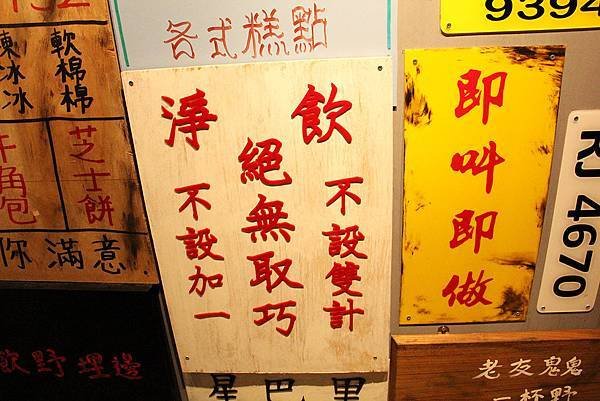 各式糕點
飲 不設雙計
絕無取巧
淨 不設加一
即叫即做
9394
RJ 4670
軟棉棉
凍冰冰
芝士餅
牛角包
你滿意
飲野埋邊
星巴里
老友鬼鬼
一杯野